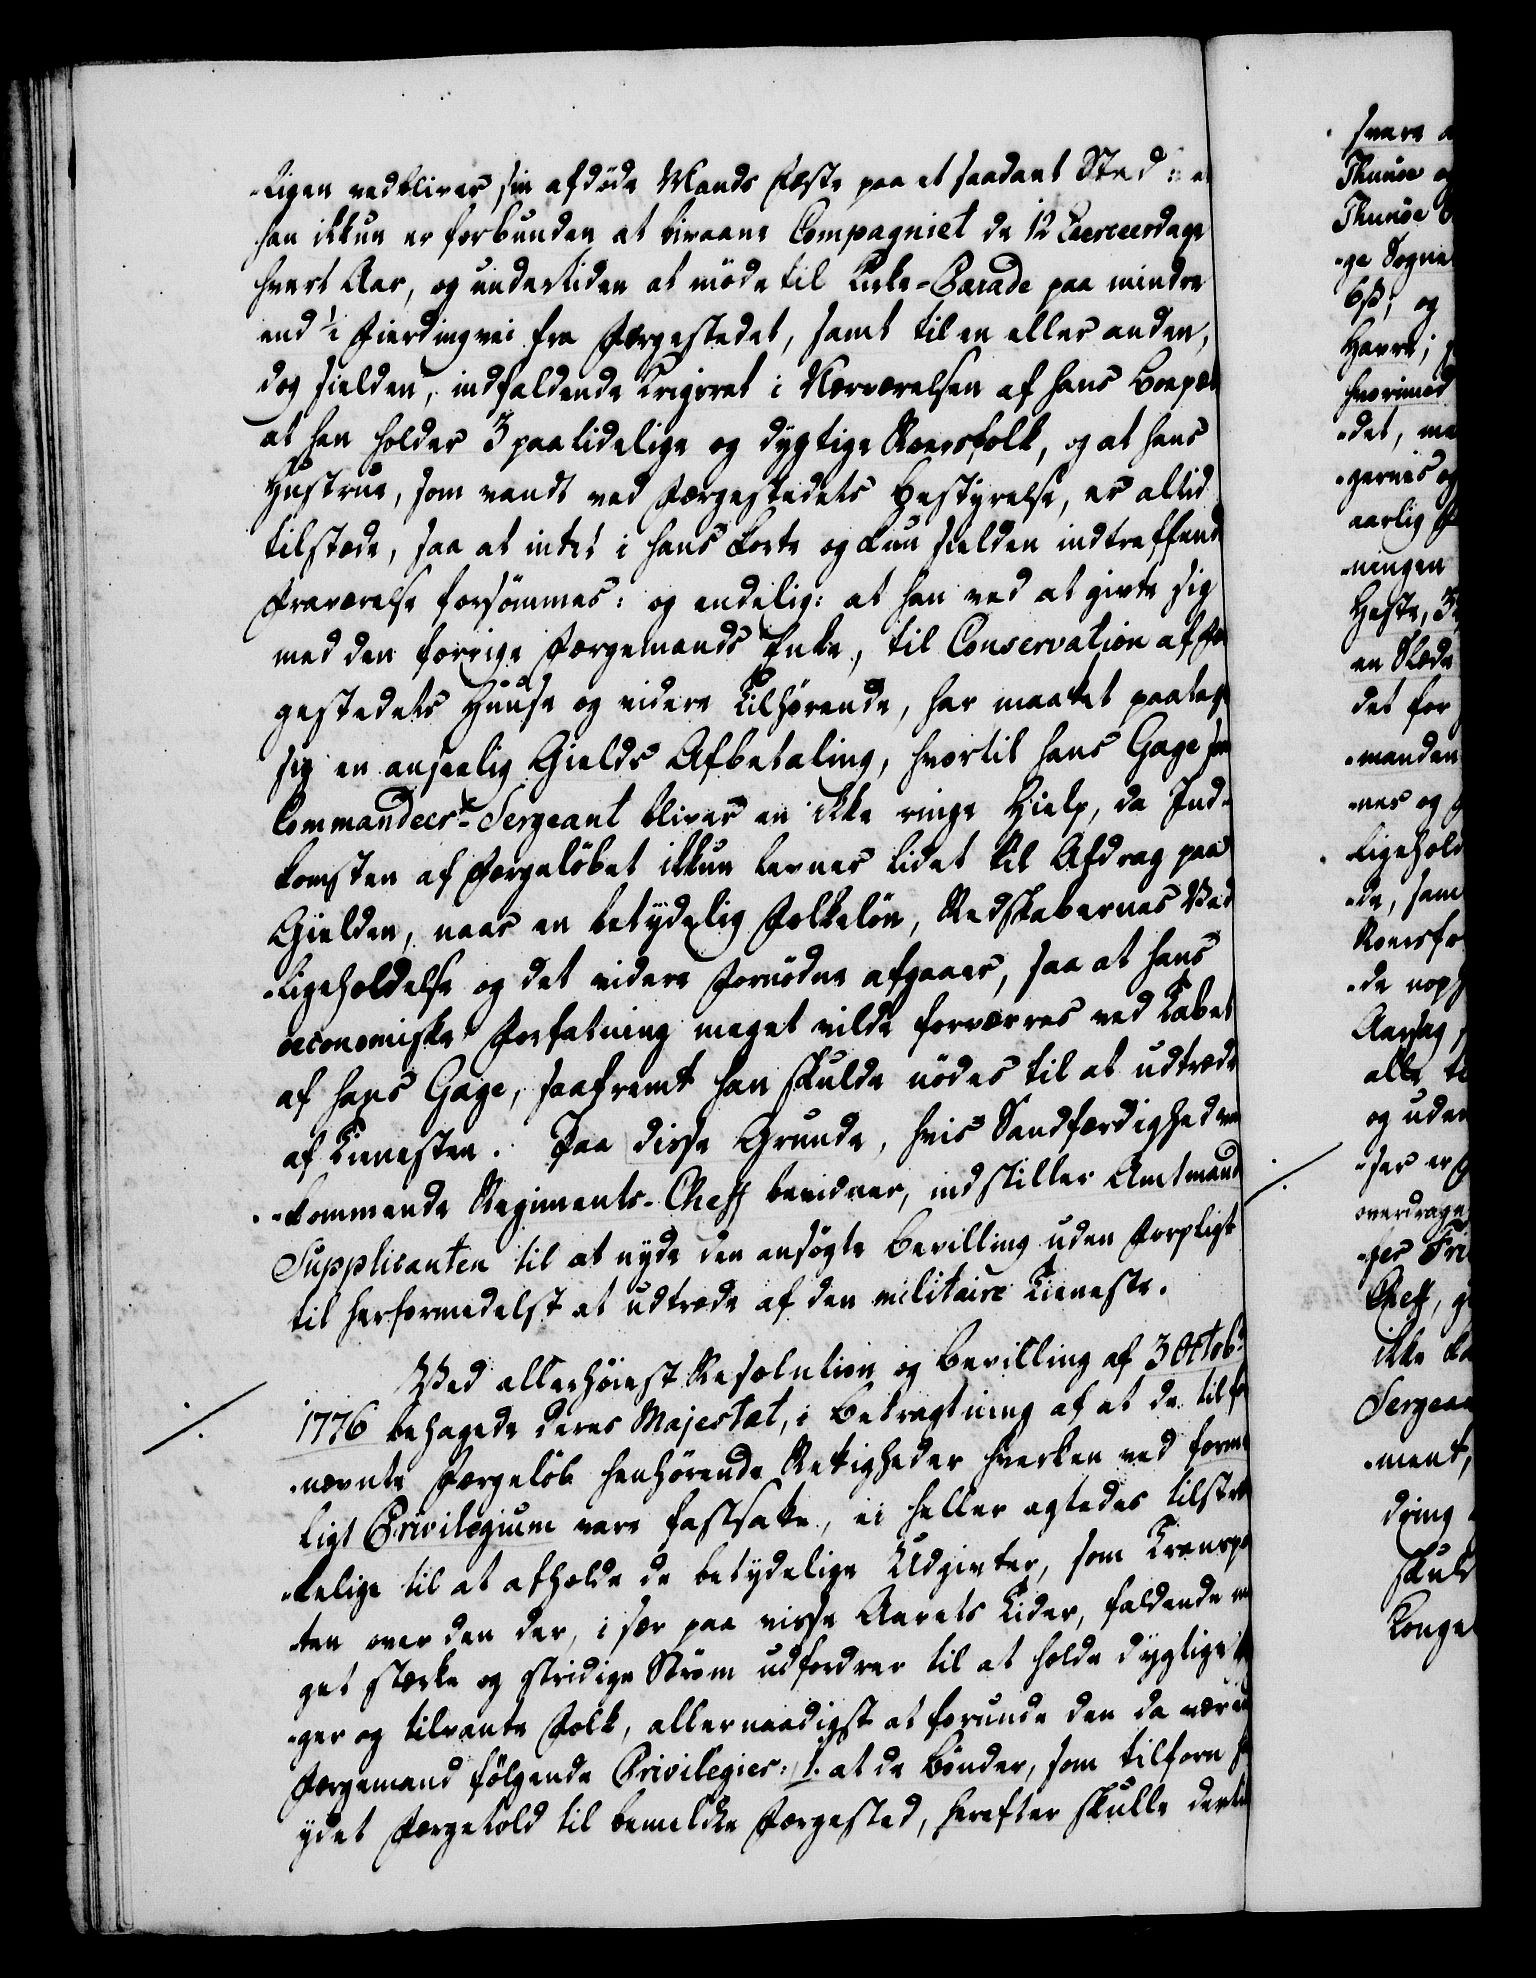 -ligen vedbliver sin afdøde Mands Fæste paa et saadant Sted: at
han ikkun er forbunden at bivaane Compagniet de 12 Exerceerdage
hvert Aar, og undertiden at møde til Kirke-Parade paa mindre
end ½ Fierdingvei fra Færgestedet, samt til en eller anden,
dog sielden, indfaldende Krigsret i Nærværelsen af hans Bopæl
at han holder 3 paalidelige og dygtige Roersfolk, og at hans
Hustrue, som vandt ved Færgestedets Bestyrelse, er altid
tilstæde, saa at intet i hans korte og kun sielden indtreffende
Fraværelse forsømmes: og endelig: at han ved at givte sig
med den forrige Færgemands Enke, til Conservation af Fær
gestedets Huuse og videre Tilhørende, har maattet paatage
sig en anseelig Gields Afbetaling, hvortil hans Gage som
Commandeer-Sergeant bliver en ikke ringe Hielp, da Ind-
komsten af Færgeløbet ikkun levner lidet til Afdrag paa
Gielden, naar en betydelig Folkeløn, Redskabernes Ved
-ligeholdelse og det videre Fornødne afgaaer, saa at hans
oeconomiske Forfatning meget vilde forværres ved Tabet
af hans Gage, saafremt han skulde nødes til at udtræde
af Tienesten. Paa disse Grunde, hvis Sandfærdighed ved
-kommende Regiments-Cheff bevidner, indstiller Amtmand
Supplicanten til at nyde den ansøgte Bevilling uden Forpligt
til herformedelst at udtræde af den militaire Tieneste.
Ved allerhøiest Resolution og Bevilling af 3 Octobr
1776 behagede deres Majestæt, i Betragtning af at de til for
-nævnte Færgeløb henhørende Rettigheder hverken ved forme
ligt Privilegium vare fastsatte, ei heller agtedes tilstræk
-kelige til at afholde de betydelige Udgivter, som Transpor
-ten over den der, i sær paa visse Aarets Tider, faldende me
get stærke og stridige Strøm udfordrer til at holde dygtige
-ger og tilvante Folk, allernaadigst at forunde den da værende
Færgemand følgende Privilegier: 1. at de Bønder, som tilforn
ydet Færgetold til bemeldte Færgested, herefter skulle dertil
svare
Thunøe og
Thunøe
-ge Sogne
6ß; og
Havre;
hvorimod
-det, me
-gernes og
aarlig
-ningen
Heste, 3
en Slæde
det for
-manden
-ner og
-ligehold
-de, sam
Roersfo
-de
Aarsag
alle
og uden
-ser er
overdrage
-ges Fri
Cheff,
ikke
Sergean
-ment,
dring
skuld
Konge